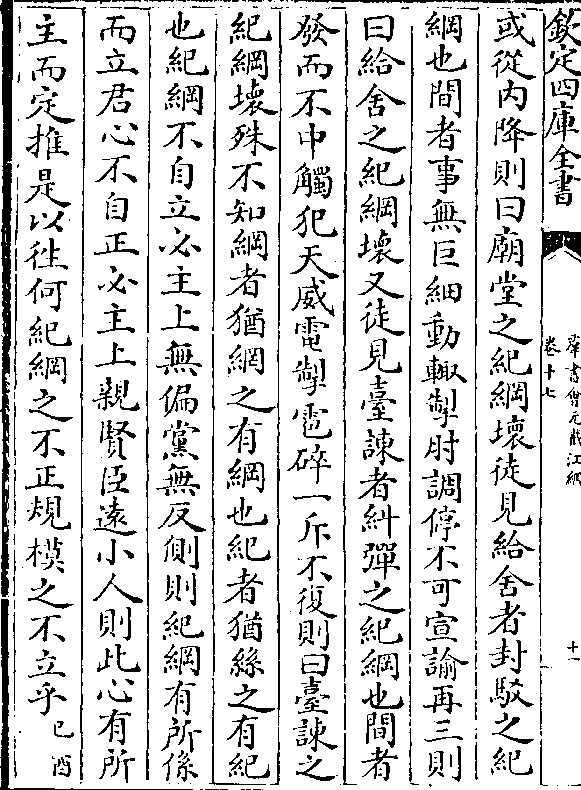 欽定四庫全書
羣書會元截江網
卷十七
十一
或從内降則曰廟堂之紀綱壞徒見給舍者封駁之紀
綱也間者事無巨細動輙掣肘調停不可宣諭再三則
曰給舍之紀綱壞又徒見臺諫者糾彈之紀綱也間者
發而不中觸犯天威電掣雹碎一斥不復則曰臺諫之
紀綱壞殊不知綱者猶網之有綱也紀者猶絲之有紀
也紀綱不自立必主上無偏黨無反側則紀綱有所係
而立君心不自正必主上親賢臣逺小人則此心有所
主而定推是以徃何紀綱之不正規模之不立乎己酉